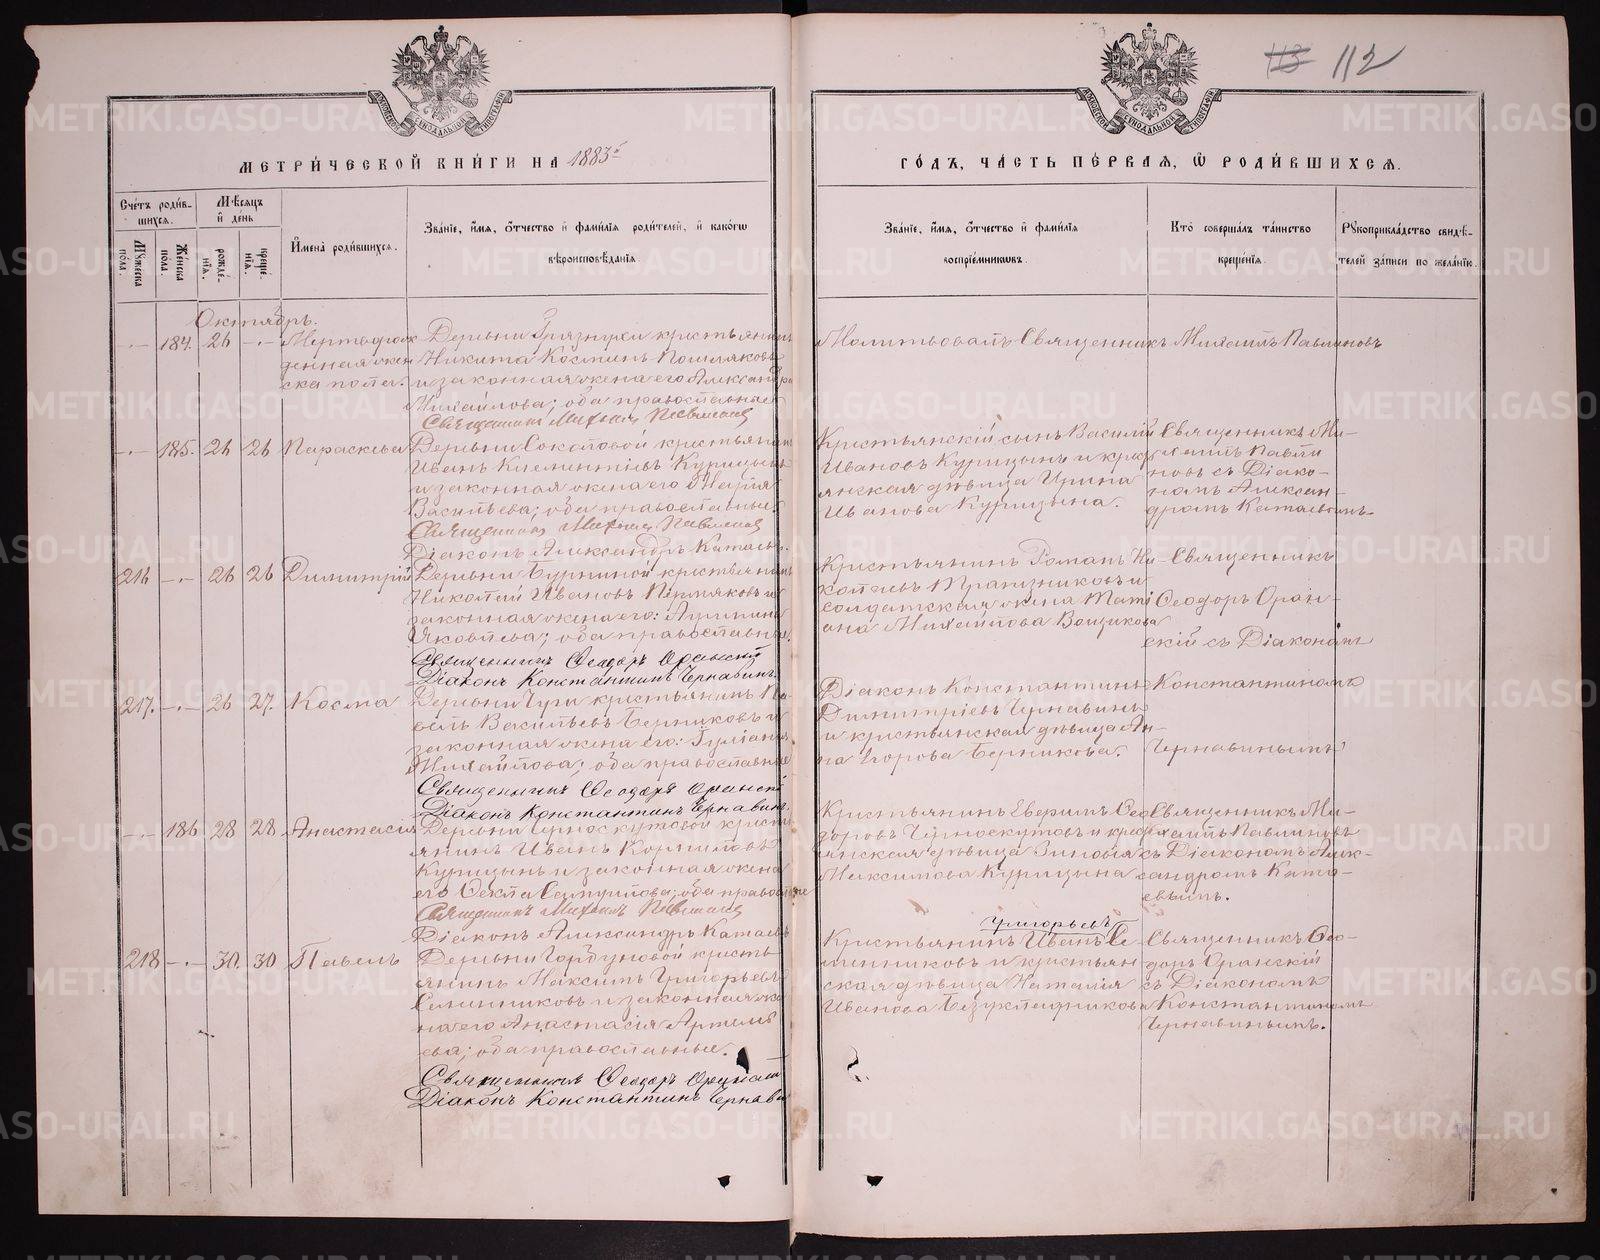 113 112
МЕТРИ́ЧЕСКОЙ КНИ́ГИ НА 1883й
ГО́ДЪ, ЧА́СТЬ ПЕ́РВАЯ, Ѡ РОДИ́ВШИХСЯ.
Сче́тъ роди́в-
шихся.
Мѣсяцъ
и день
Му́жеска
пола.
Же́нска
пола.
рожде́-
нїя.
креще́-
нїя.
Имена̀ роди́вшихся.
Зва́нїе, имя, ѻтчество и фами́лїя роди́телей, и како́гѡ
вѣроисповѣ́данїя
Зва́нїе, имя, ѻтчество и фами́лїя
воспрїе́мниковъ.
Кто̀ соверша́лъ та́инство
креще́нїя.
Рꙋкоприкла́дство свидѣ́-
телей за́писи по жела́нїю.
Октябрь.
-.- 184. 26 -.- Мертворож
денная жен
ска пола.
Деревни Грязнухи крестьянинъ
Никита Космин Пошляковъ
и законная жена его Александра
Михайлова; оба православные
Священник Михаил Павлинов
Молитвовалъ Священникъ Михаилъ Павлиновъ
-.- 185. 26 26 Параскева
Деревни Соколовой крестьянинъ
Иванъ Клементіевъ Курицынъ
и законная жена его Марія
Васильева; оба православные.
Священникъ Михаил Павлинов
Діаконъ Александръ Катаевъ.
Крестьянскій сынъ Василій
Ивановъ Курицынъ и крест
янская дѣвица Ирина
Иванова Курицына.
Священникъ Ми-
хаилъ Павли
новъ съ Діако-
номъ Алексан-
дромъ Катаевымъ.
216 -.- 26 26 Димитрій
Деревни Бурниной крестьянинъ
Николай Ивановъ Пермяковъ и
законная жена его: Агрипина
Яковлева; оба православные.
Священникъ Ѳеодоръ Оранскій
Діаконъ Константинъ Чернавинъ.
Крестьянинъ Романъ Ни
колаевъ Трапезниковъ и
солдатская жена Тати
ана Михайлова Вощикова
Священникъ
Ѳеодоръ Оран-
скій съ Діакономъ
217. -.- 26 27. Косма
Деревни Чуги крестьянинъ Па
велъ Васильевъ Берниковъ и
законная жена его: Іуліанія
Михайлова; оба православные
Священникъ Ѳеодоръ Оранскій
Діаконъ Константинъ Чернавинъ.
Діаконъ Константинъ
Димитріевъ Чернавинъ
и крестьянская дѣвица Ан
на Егорова Берникова.
Константиномъ
Чернавинымъ
-.- 186 28 28 Анастасія
Деревни Черноскутовой кресть
янинъ Иванъ Корниловъ
Курицынъ и законная жена
его Ѳекла Самуилова; оба православные
Священникъ Михаилъ Павлинов
Діаконъ Александръ Катаевъ
Крестьянинъ Евфимъ Ѳео
доровъ Черноскутовъ и крест
янская дѣвица Зиновія
Максимова Курицына
Священникъ Ми-
хаилъ Павлиновъ
съ Діакономъ Алек-
сандромъ Ката-
евымъ.
218 -.- 30. 30 Павелъ
Деревни Горбуновой кресть
янинъ Максимъ Григорьевъ
Селянниковъ и законная же
на его Анастасія Артемь
ева; оба православные.
Священникъ Ѳеодоръ Оранскій
Діаконъ Константинъ Чернави
Григорьевъ
Крестьянинъ Иванъ Се
лянниковъ и крестьян
ская дѣвица Наталія
Иванова Безукладникова
Священникъ Ѳео-
доръ Оранскій
съ Діакономъ
Константиномъ
Чернавинымъ.